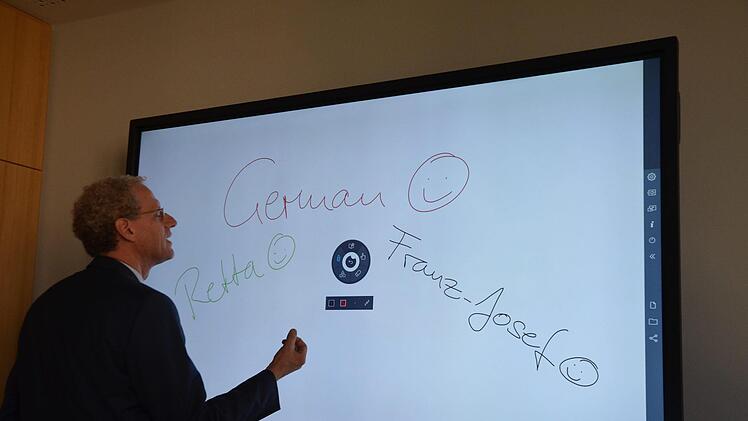 German
Retta
Franz-Josef